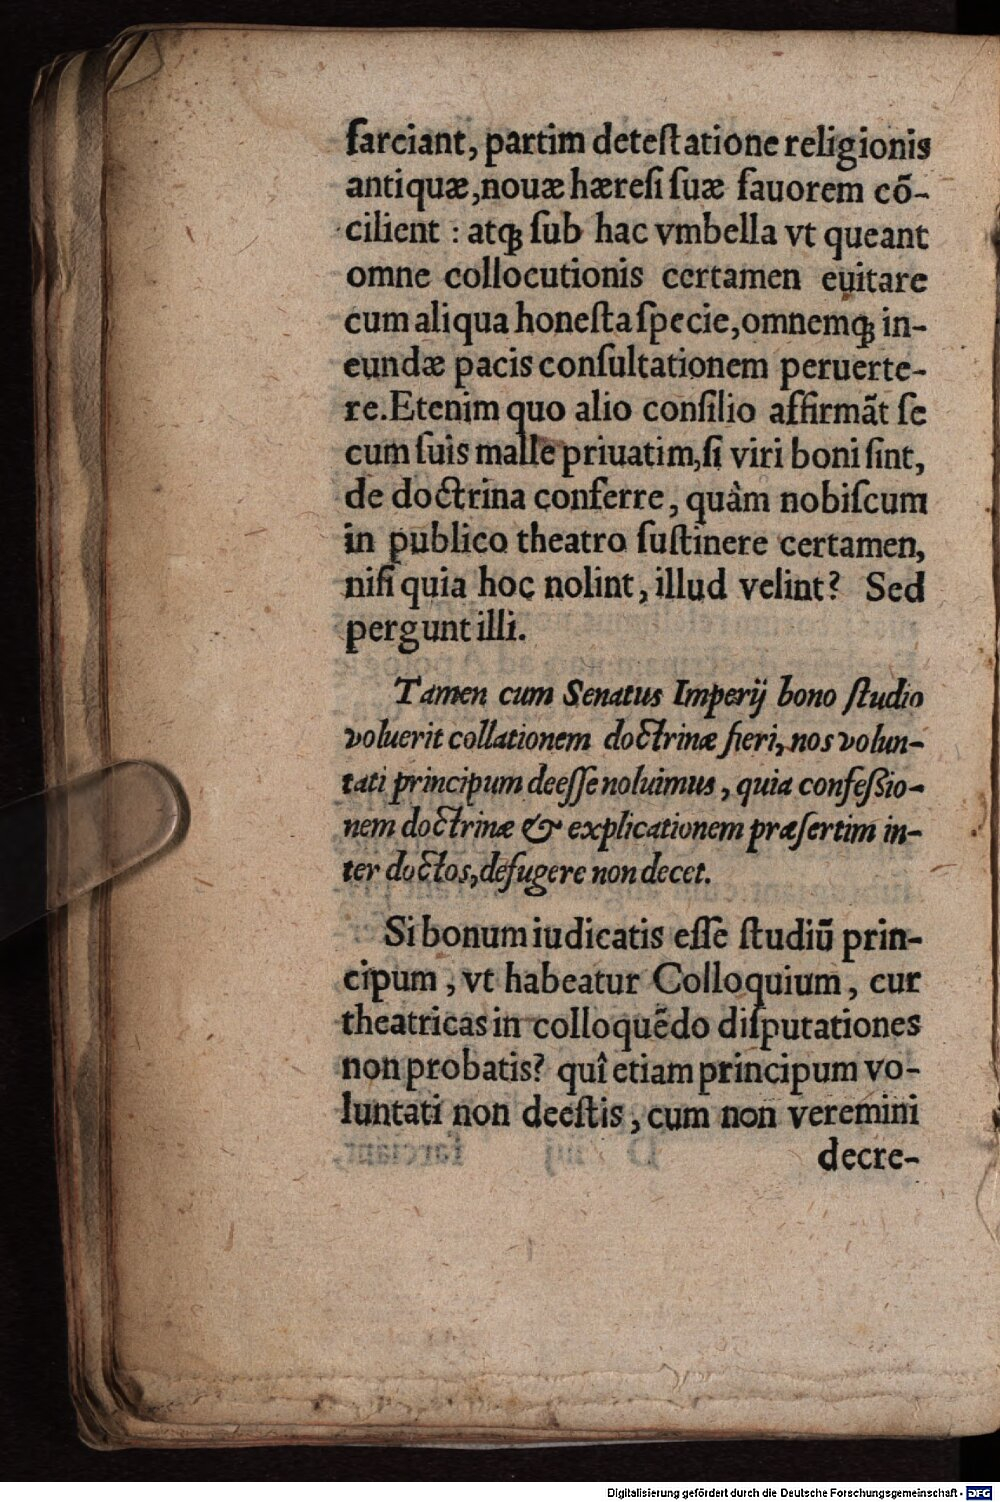 farciant, partim deteſtatione religionis
antiquæ, nouæ hæreſi ſuæ fauorem cō-
cilient : atq́ꝫ ſub hac vmbella vt queant
omne collocutionis certamen euitare
cum aliqua honeſta ſpecie, omnemq́ꝫ in-
eundæ pacis conſultationem peruerte-
re. Etenim quo alio conſilio affirmāt ſe
cum ſuis malle priuatim, ſi viri boni ſint,
de doctrina conferre, quàm nobiſcum
in publico theatro ſuſtinere certamen,
niſi quia hoc nolint, illud velint? Sed
pergunt illi.
Tamen cum Senatus Imperij bono ſtudio
voluerit collationem doctrinæ fieri, nos volun-
tati principum deeſſe noluimus, quia confeſsio-
nem doctrinæ & explicationem præſertim in-
ter doctos, defugere non decet.
Si bonum iudicatis eſſe ſtudiū prin-
cipum, vt habeatur Colloquium, cur
theatricas in colloquēdo diſputationes
non probatis? quî etiam principum vo-
luntati non deeſtis, cum non veremini
decre-
Digitalisierung gefördert durch die Deutsche Forschungsgemeinschaft - DFG